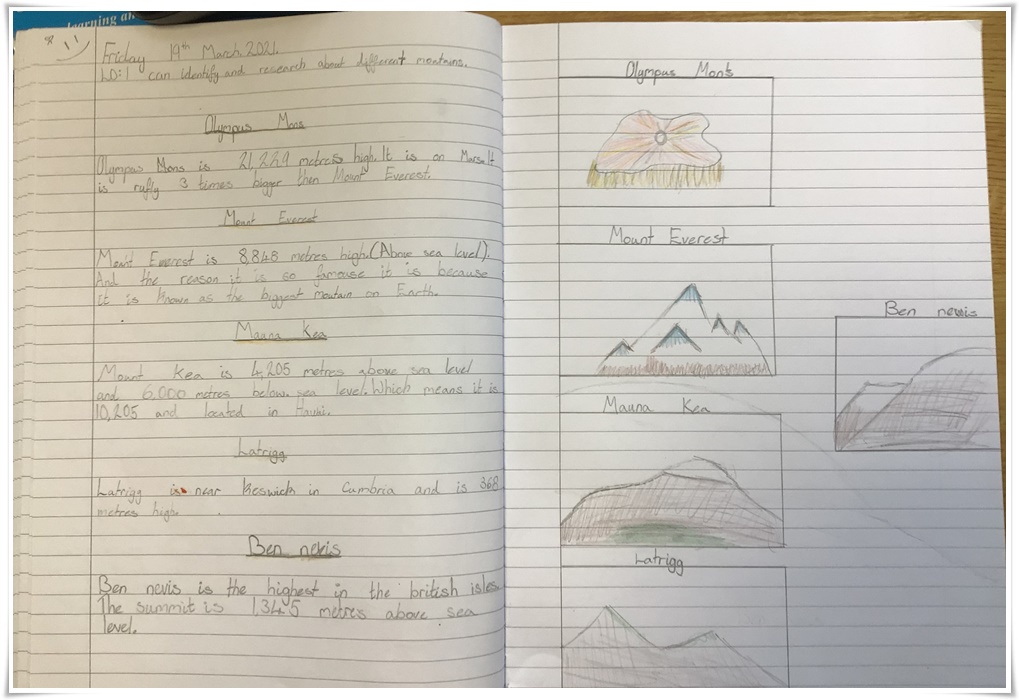 learning an
Friday 19th March 2021.
LO: I can identify and research about different montains.
Olympus Mons
Olympus Mons is 21,229 metres high. It is on Mars. It
is rufly 3 times bigger then Mount Everest.
Mount Everest
Mount Everest is 8,848 metres high. (Above sea level).
And the reason it is so famouse it is because
it is known as the biggest moutain on Earth.
Mauna Kea
Mount Kea is 4,205 metres above sea level
and 6,000 metres below sea level. Which means it is
10,205 and located in
Latrigg
Latrigg is near Keswick in Cumbria and is 368
metres high.
Ben nevis
Ben nevis is the highest in the british isles.
The summit is 1,345 metres above sea
level.
Olympus Mons
Mount Everest
Mauna Kea
Latrigg
Ben nevis